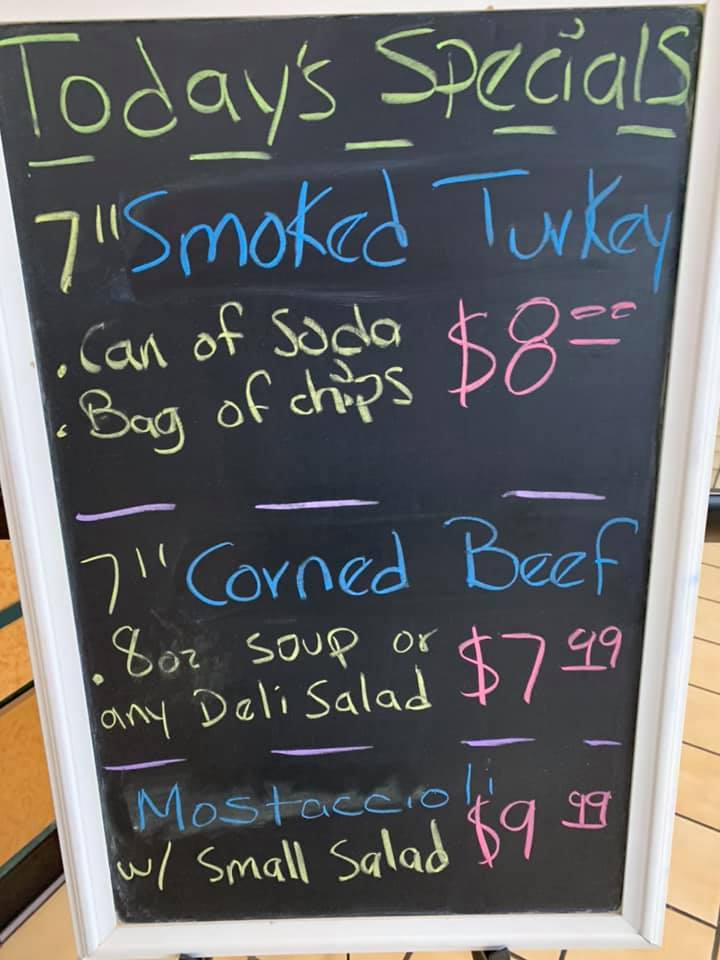 Today's Specials
7" Smoked Turkey
. Can of Soda $8.00
. Bag of chips
7" Corned Beef
. 8oz soup or $7.99
any Deli Salad
Mostaccioli
w/ Small Salad $9.99